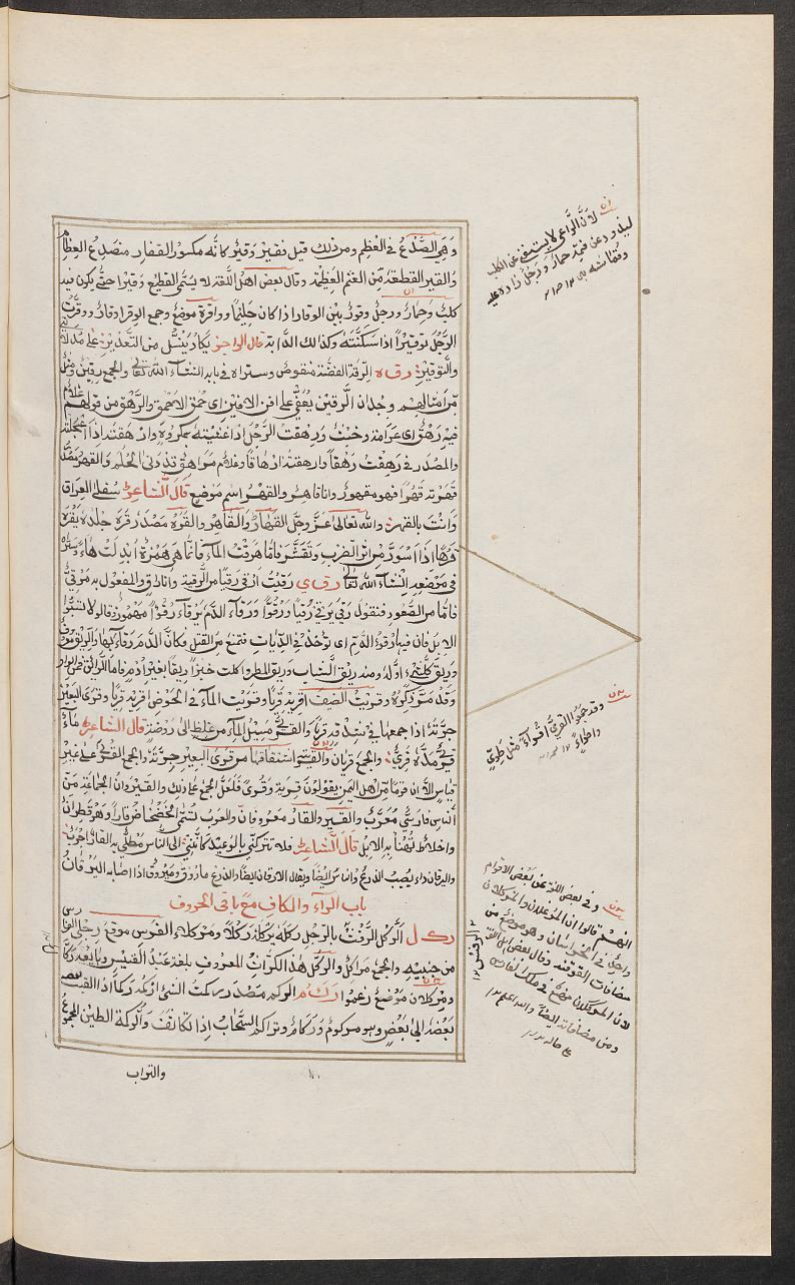 وهي الصدع في العظم ومن ذلك قيل فقير وقير كانه مكسور الفقار منصدع العظام
والقير القطعة من الغنم العظيمة وقال بعض اهل اللغة لا يسمى القطيع وقيرا حتى يكون فيه
كلب وحمار ورجل وقور بين الوقار اذا كان حليما وواقرة موضع وجمع الوقر اوقار ووقرت
الرجل توقيرا اذا سكنته وكذالك الدابة قال الراجز يكاد ينسل من التصدير على مدالا
والتوقير رقه الرقة الفضة منقوص وستراه في بابه انشاء الله تعالى والجمع رقين ومثل
من امثالهم وجدان الرقين يغطي على افن الافين اى حمق الاحمق والرهق من قولهم غلام
فيه رهق اى عرامة وخبث ورهقت الرجل اذا غشيته بمكروه وارهقته اذا اعجلته
والمصدر في رهقت رهقا وارهقته ارهاقا وغلام مراهق قد دنى الحلم والقهر مصدر
قهرته قهرا فهو مقهور وانا قاهر والقهر اسم موضع قال الشاعر سفلى العراق
وانت بالقهر والله تعالى عز وجل القهار والقاهر والقره مصدر قره جلده يقره
قرها اذا اسود من اثر الضرب وتقشر فاما هرقت الماء فانما هي همزة ابدلت هاء وستراه
في موضعه انشاء الله تعالى رقي رقيت ارقي رقيا من الرقية وانا راق والمفعول به مرقي
فاما من الصعود فتقول رقي يرقى رقيا ورقوا ورقاء الدم يرقاء رقوا مهموز وقالوا لا تسبوا
الابل فان فيها رقوء الدم اى توخذ في الديات فتمنع من القتل فكان الدم رقاء بها والريق معروف
وريق كل شيء اوله ومنه ريق الشباب وريق المطر واكلت خبزا ريقا بغير ادم فاما الرائق فمن الواو
وقد مر ذكره وقريت الضيف اقريه قرى وقريت الماء في الحوض اقريه قريا وقرى البعير
جرته اذا جمعها في شدقه قريا والقري مسيل الماء من غلظ الى روضة قال الشاعر ماء
قري مده قري والجمع قريان والقرية اشتقاقها من قرى البعير جرته والجمع القرى على غير
قياس الا ان قوما من اهل اليمن يقولون قرية وقرى فلعل الجمع على ذلك والقيروان الجماعة من
الناس فارسي معرب والقير والقار معروفان والعرب تسمى الخضخاض قارا وهو قطران
واخلاط تهنأ به الابل قال الشاعر فلا تتركني بالوعيد كانني الى الناس مطلي به القار اجرب
واليرقان داء يصيب الذرع وانا من ايضا ويقال الارقان ايضا والذرع ماروق وميروق اذا اصابه اليرقان
باب الراء والكاف مع باقى الحروف
ركل الركل الرفث بالرجل ركله يركله ركلا ومركلاء الفرس موقع رجلي الفارس
من جنبيه والجمع مراكل والركل هذا الكراث المعروف بلغة عبد القيس وبايعه ركال
ومركلان موضع زعموا ركم الركم مصدر ركمت الشئ اركمه ركما اذا القيت بعضه
بعضه الى بعض وهو مركوم وركام وتراكم السحاب اذا تكاثف والركمة الطين المجموع
والتراب
لان الراعى لا يستغني عن الكلب
ليذود عن غنمه وحمار ورجل زاده عليه
وقماشه
وقد جمعوا القرى اقراء مثل طوى
واطواء
وفي بعض اللغة عن بعض الاقوام
انهم قالوا ان المركلان والمركلان
واحد في الخراسان وهو موضع من
مضافات القوقنه وقال بعض اهل اللغة
لان المركلان موضع في ملك الفارس
ومن مضافاته ايضا والله اعلم
على حاله